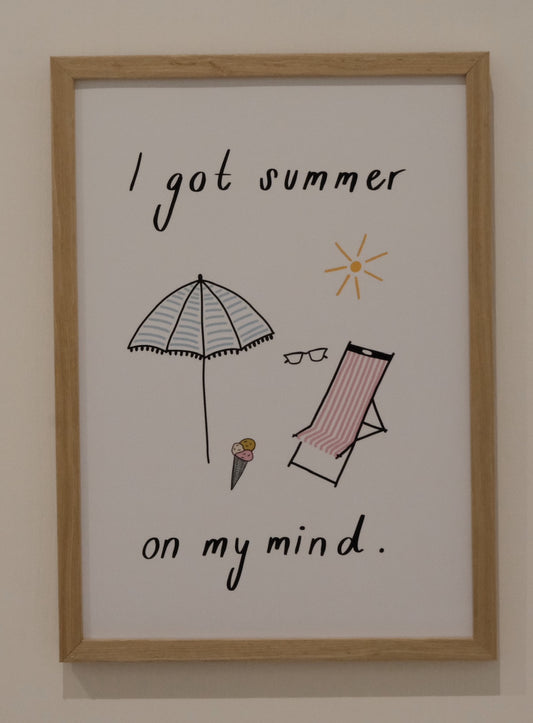 I got summer
on my mind.